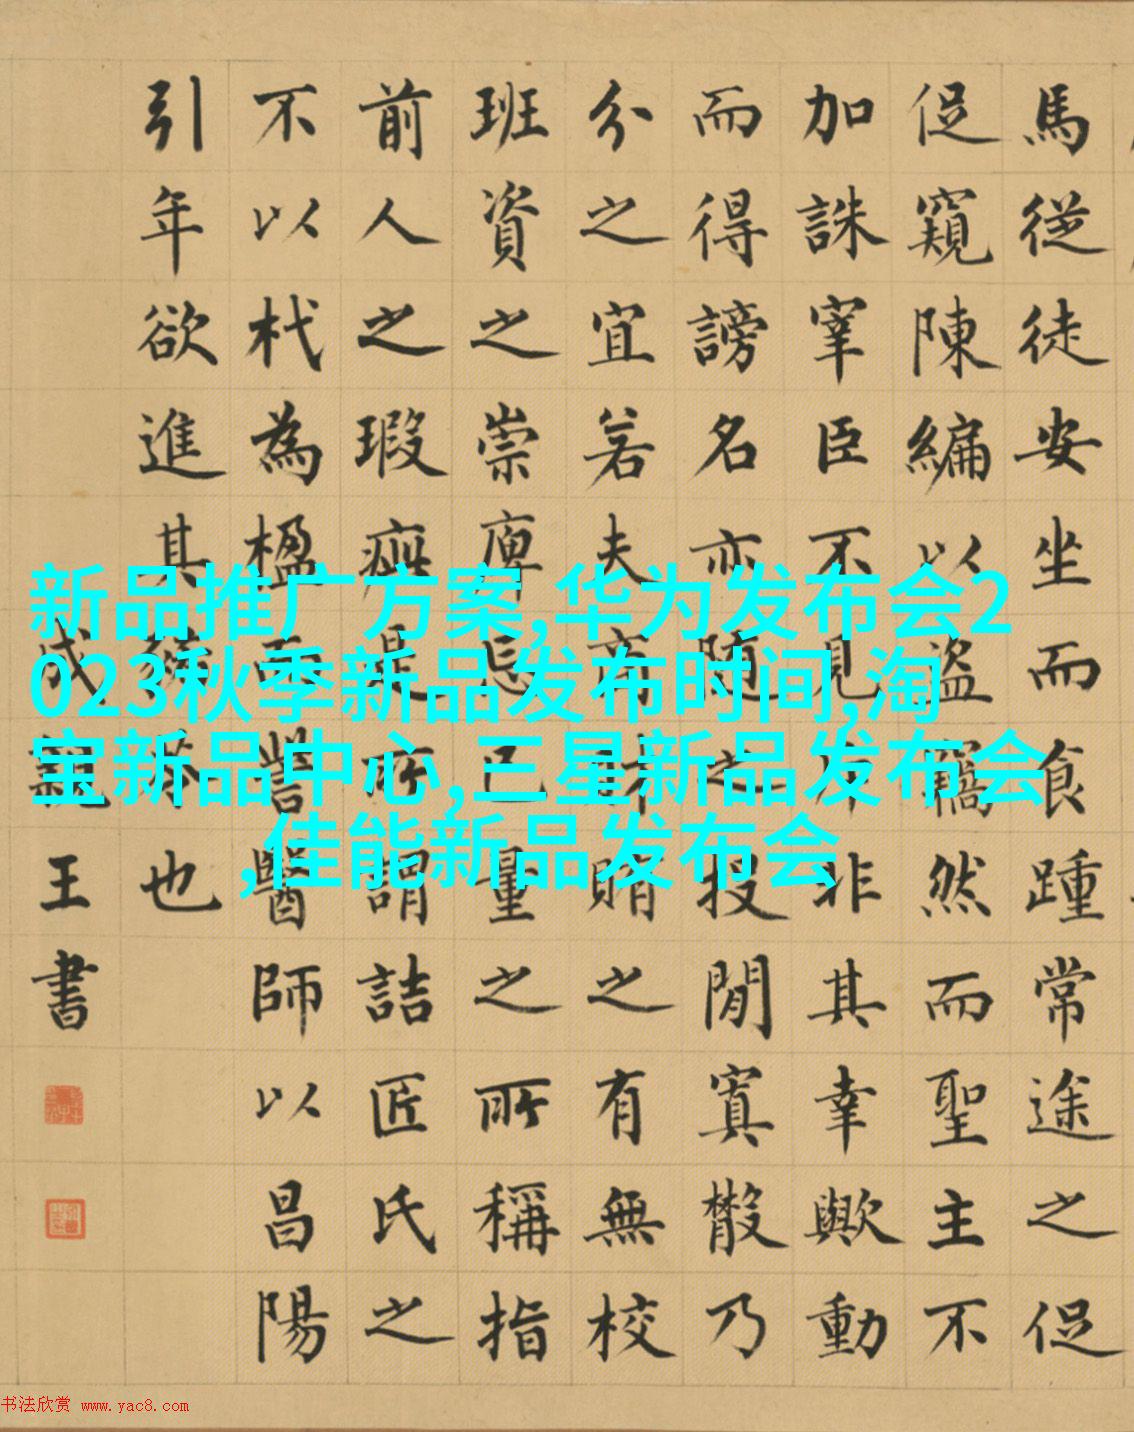 馬從徒安坐而食踵常途之促
促窺陳編以盗竊然而聖主不
加誅宰臣不見斥非其幸歟動
而得謗名亦随之投閒寘散乃
分之宜若夫商財賄之有無校
班資之崇庳忘己量之所稱指
前人之瑕疵是所謂詰匠氏之
不以杙為楹而訾醫師以昌陽
引年欲進其豨苓也
成親王書
新品推广方案,华为发布会2
023秋季新品发布时间,淘
宝新品中心,三星新品发布会
,佳能新品发布会
书法欣赏 www.yac8.com